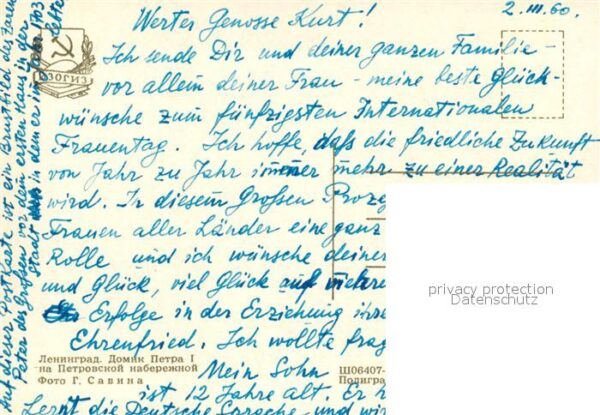 2. III. 60.
Werter Genosse Kurt!
Ich sende Dir und deiner ganzen Familie –
vor allem deiner Frau – meine beste Glück-
wünsche zum fünfzigsten Internationalen
Frauentag. Ich hoffe, daß die friedliche Zukunft
von Jahr zu Jahr immer mehr zu einer Realität
wird. In diesem Großen Proz
Frauen aller Länder eine ganz
Rolle und ich wünsche deiner
und Glück, viel Glück auf
Erfolge in der Erziehung ihre
Ehrenfried. Ich wollte frag
Mein Sohn
ist 12 Jahre alt. Er h
Lernt die Deutsche Sprache und
Auf dieser Postkarte ist ein Brustbild des Zaren
Peter des Großen vor dem ersten Haus in der
Stadt in dem er im Jahr 1703
lebte
ИЗОГИЗ
Ленинград. Домик Петра I
на Петровской набережной
Фото Г. Савина
Ш06407-
Полигра
privacy protection
Datenschutz